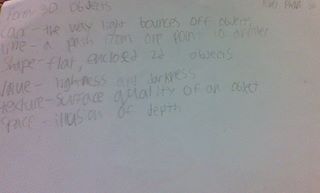 form 3D objects
color - the way light bounces off objects
line - a path from one point to another
shape - flat, enclosed 2d objects
value - lightness and darkness
texture - surface quality of an object
space - illusion of depth